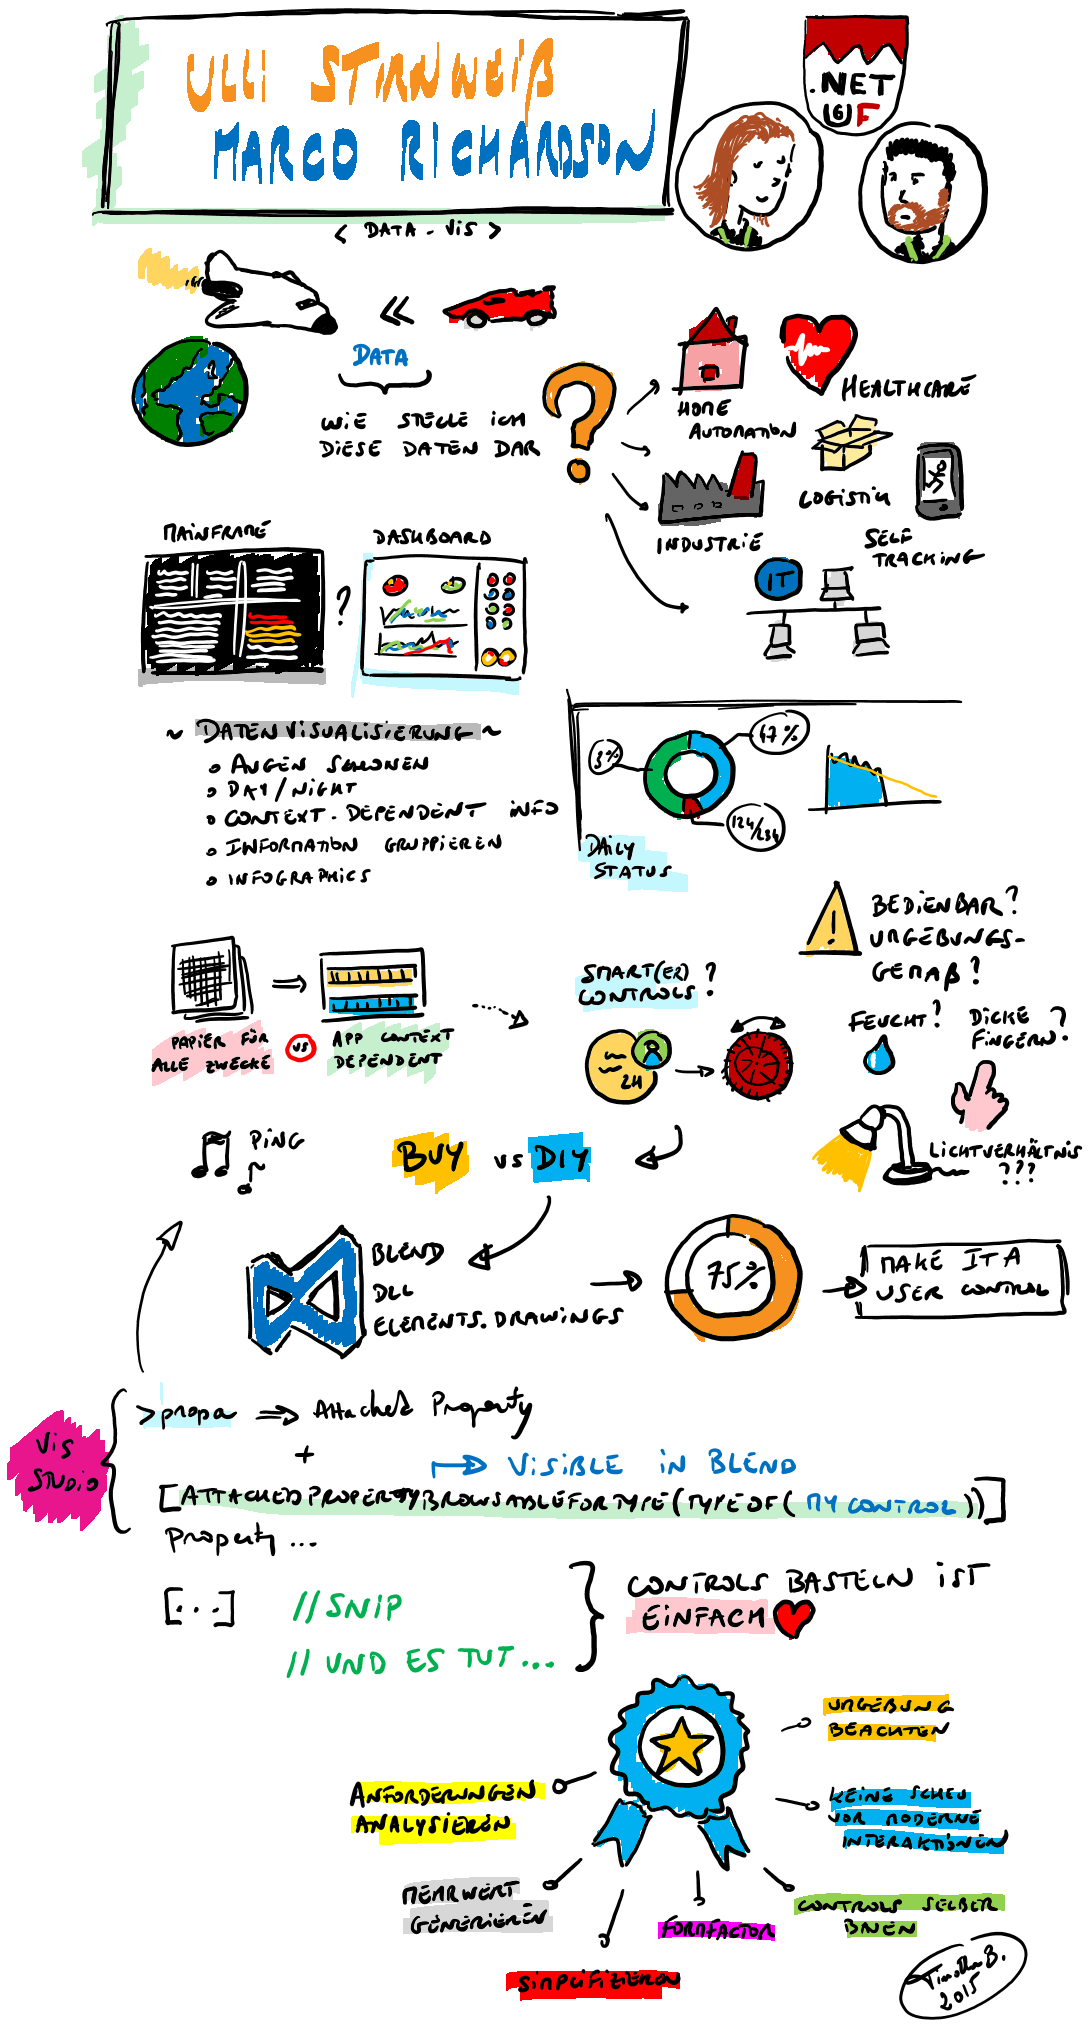 ULLI STIRNWEIß
MARCO RICHARDSON
.NET
UGF
< DATA - VIS >
DATA
WIE STELLE ICH
DIESE DATEN DAR
?
HOME
AUTOMATION
HEALTHCARE
LOGISTIK
INDUSTRIE
SELF
TRACKING
IT
MAINFRAME
?
DASHBOARD
~ DATENVISUALISIERUNG ~
o AUGEN SCHONEN
o DAY/NIGHT
o CONTEXT-DEPENDENT INFO
o INFORMATION GRUPPIEREN
o INFOGRAPHICS
3%
47%
124/234
DAILY
STATUS
PAPIER FÜR
ALLE ZWECKE
VS
APP CONTEXT
DEPENDENT
SMART(ER)
CONTROLS?
2H
!
BEDIENBAR?
UMGEBUNGS-
GEMÄß?
FEUCHT?
DICKE
FINGERN?
LICHTVERHÄLTNIS
???
PING
BUY VS DIY
BLEND
DLL
ELEMENTS.DRAWINGS
75%
MAKE IT A
USER CONTROL
VIS
STUDIO
>propa => Attached Property
+
VISIBLE IN BLEND
[ATTACHEDPROPERTYBROWSABLEFORTYPE(TYPEOF(MY CONTROL))]
Property ...
[...]
//SNIP
// UND ES TUT...
CONTROLS BASTELN IST
EINFACH
UMGEBUNG
BEACHTEN
ANFORDERUNGEN
ANALYSIEREN
KEINE SCHEU
VOR MODERNE
INTERAKTIONEN
MEHRWERT
GENERIEREN
FORMFACTOR
CONTROLS SELBER
BAUEN
SIMPLIFIZIEREN
Timothée B.
2015